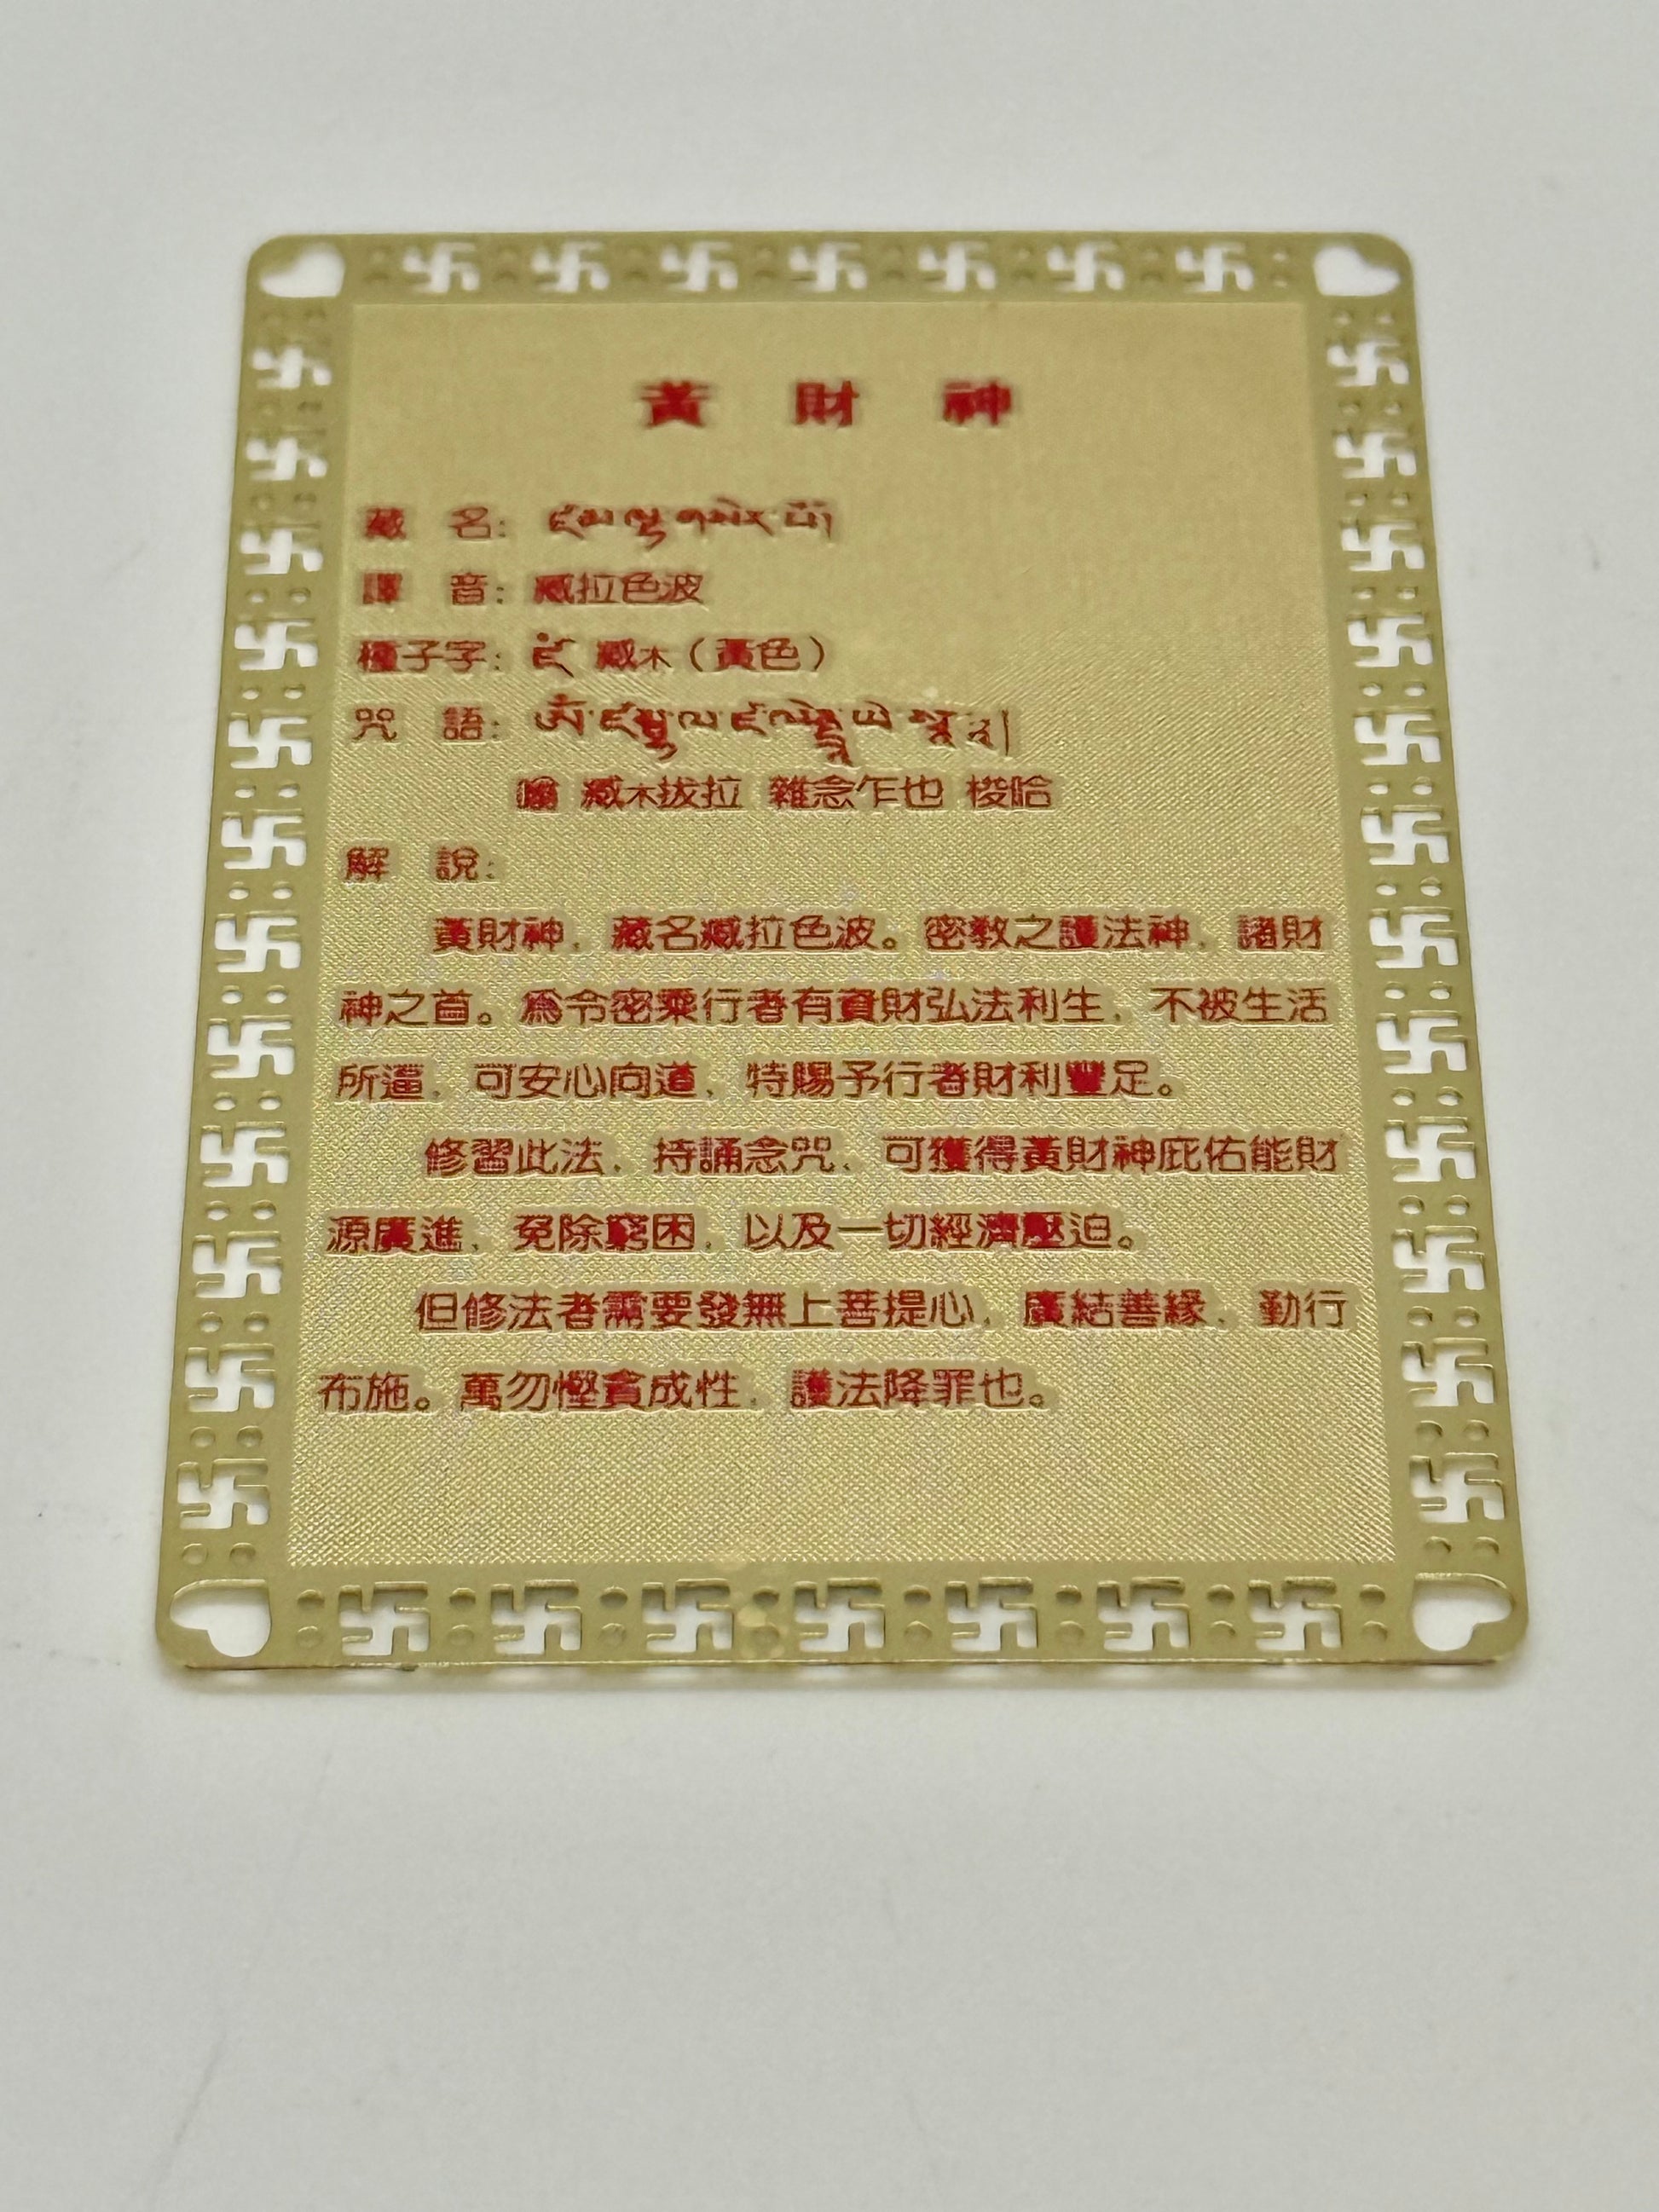 黃財神
藏 名：
譯 音：臧拉色波
種子字：ཛཾ 臧木（黃色）
咒 語：
嗡 臧木拔拉 雜念乍也 梭哈
解 說：
黃財神，藏名臧拉色波。密教之護法神，諸財
神之首。為令密乘行者有資財弘法利生，不被生活
所逼，可安心向道，特賜予行者財利豐足。
修習此法，持誦念咒，可獲得黃財神庇佑能財
源廣進，免除窮困，以及一切經濟壓迫。
但修法者需要發無上菩提心，廣結善緣，勤行
布施。萬勿慳貪成性，護法降罪也。